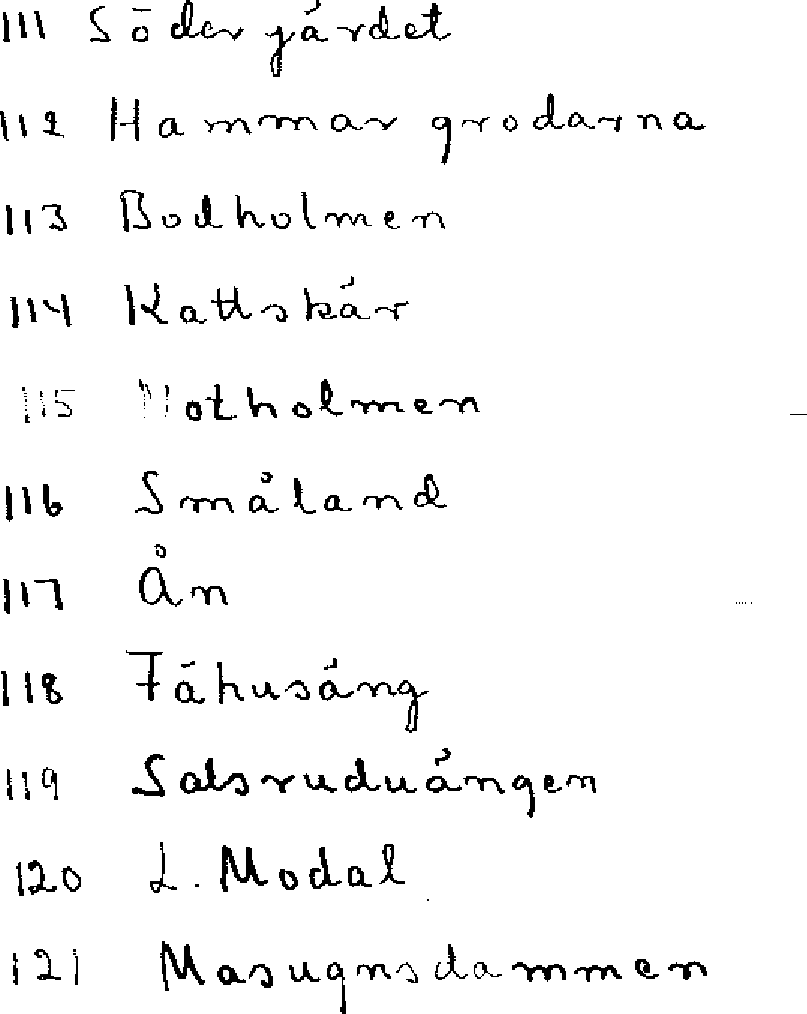 111 Södergärdet
112 Hammargrodarna
113 Bodholmen
114 Kattskär
115 Notholmen
116 Småland
117 Ån
118 Fähusäng
119
120 L. Modal
121 Masugnsdammen